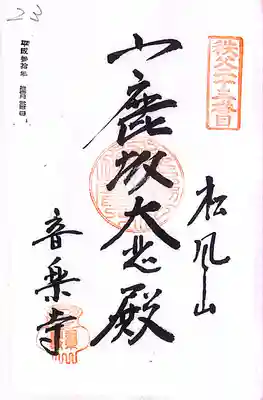 23
秩父二十三番
松風山
小鹿坂大悲殿
音楽寺
平成参拾年